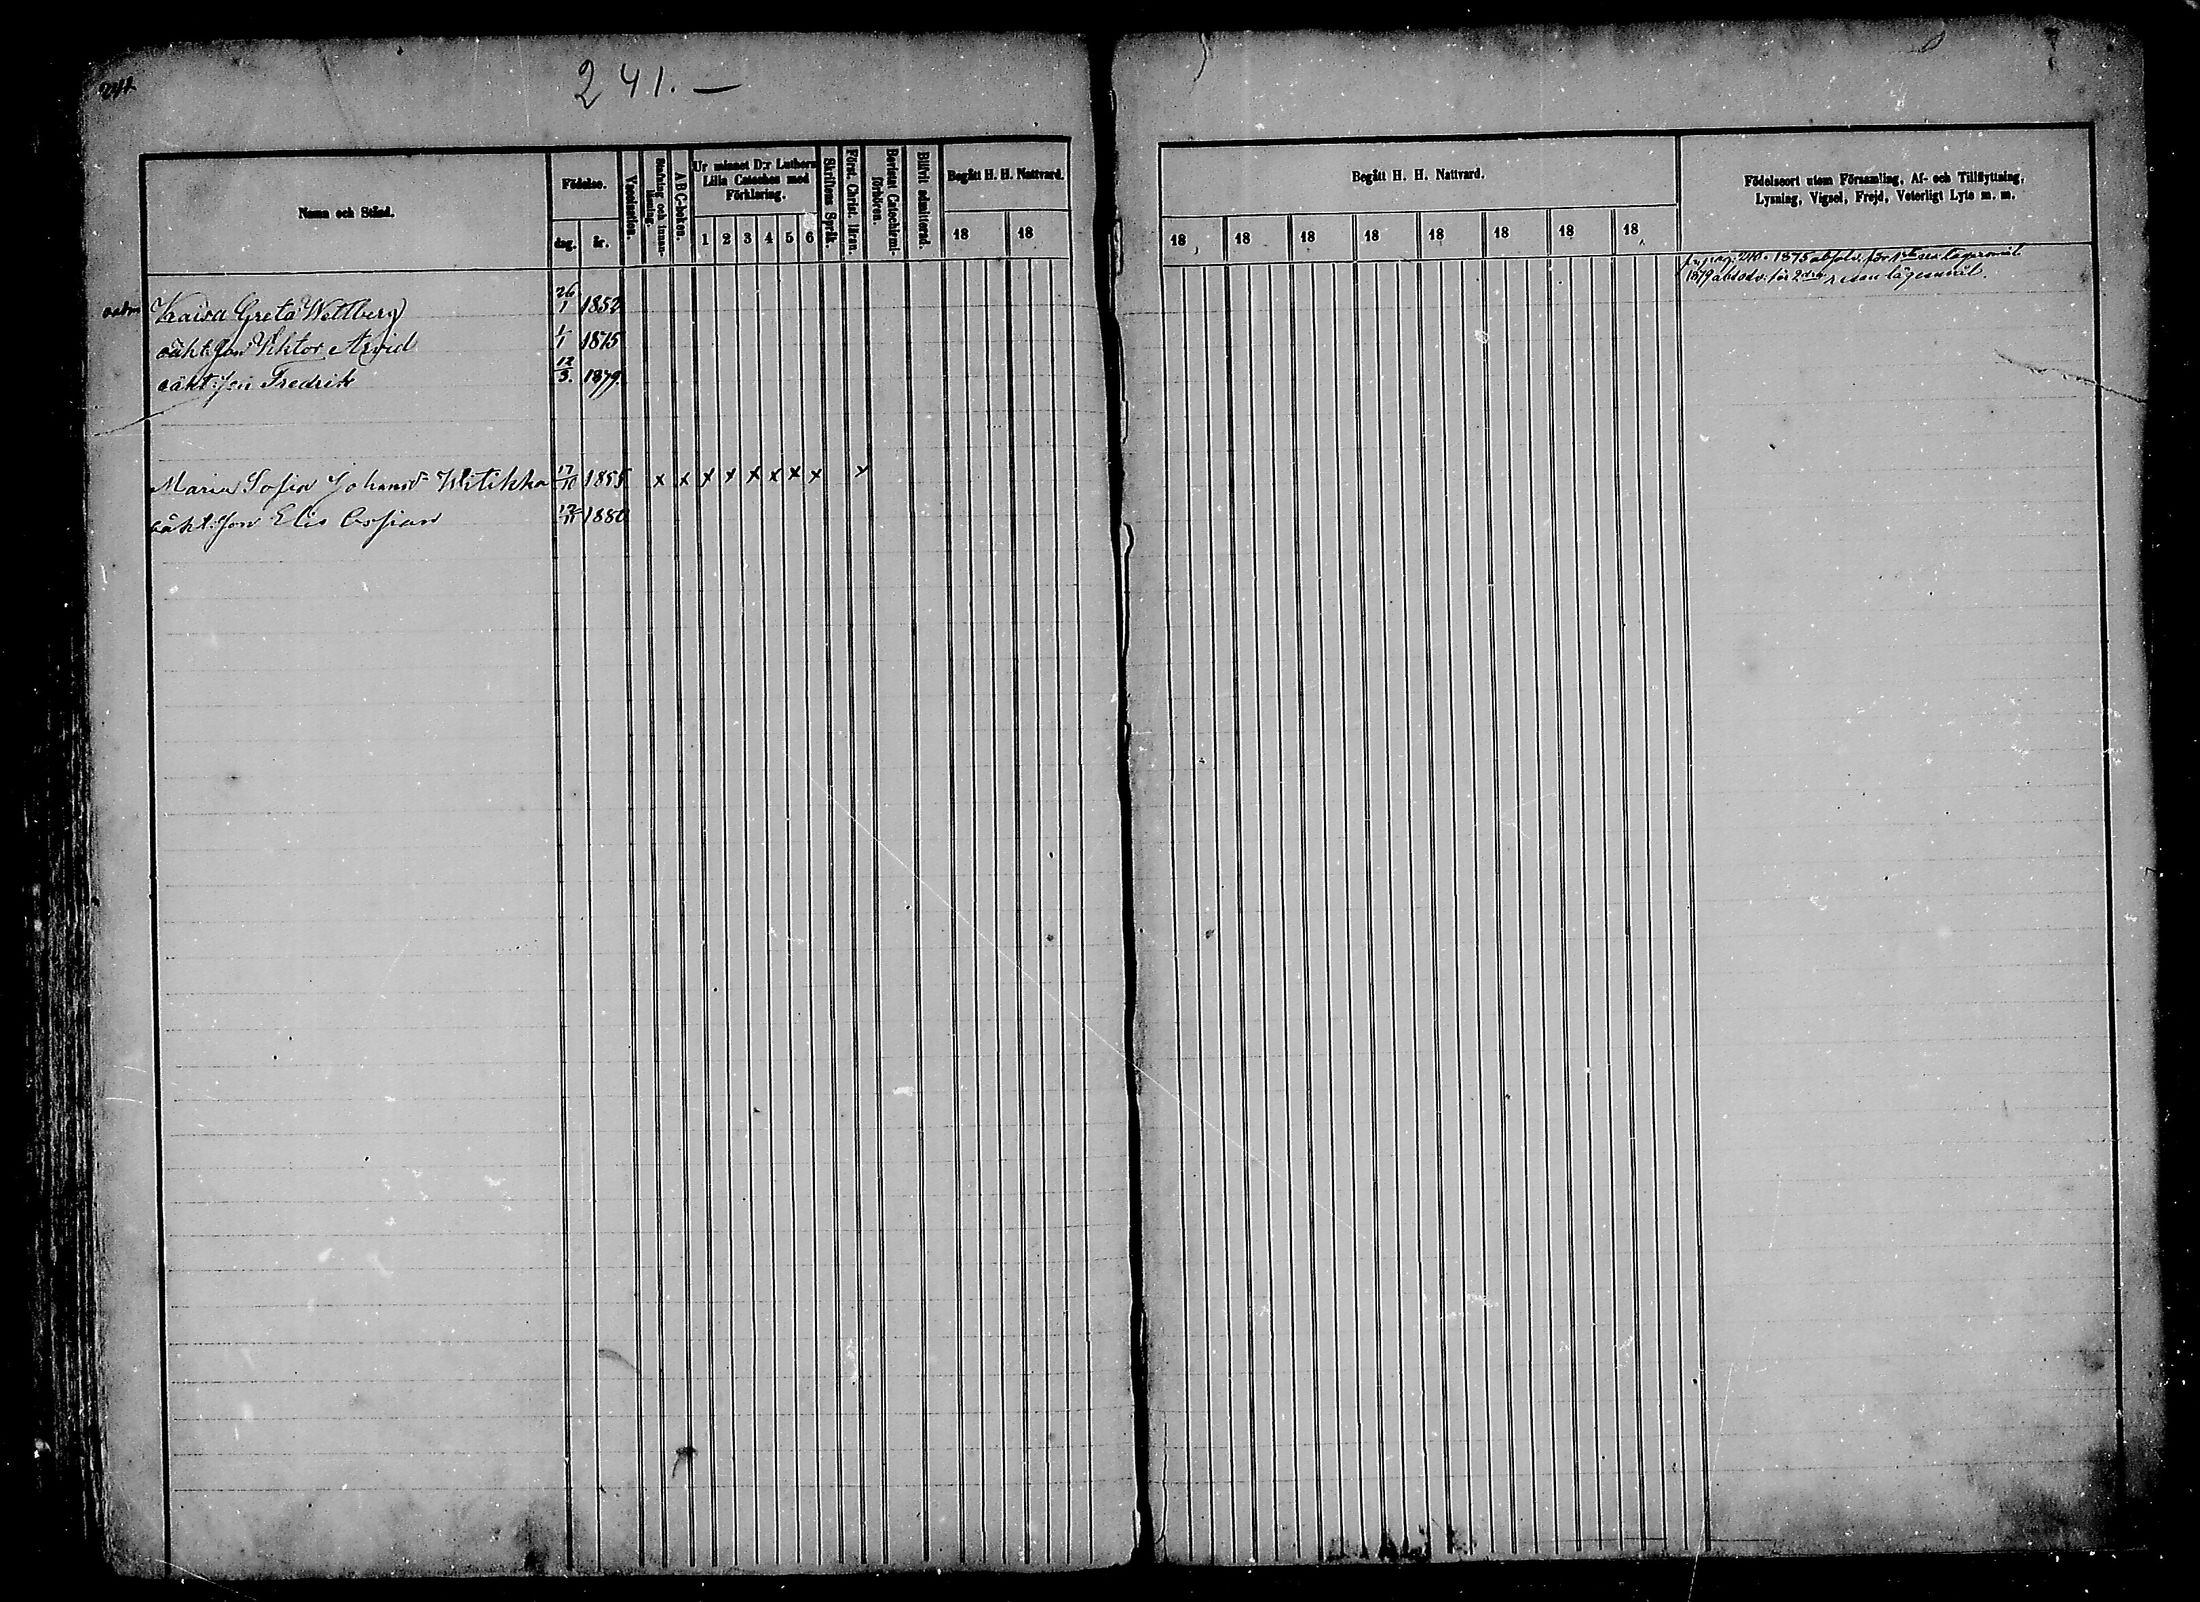 241.
241. —
Namn och Stånd.
Födelse.
dag.
år.
Vaccination.
Stafning och innanläsning.
A B C-boken.
Ur minnet D:r Luthers Lilla Cateches med Förklaring.
1 2 3 4 5 6
Skriftens Språk.
Först. Christ. läran.
Bevistat Catechismiförhören.
Blifvit admitterad.
Begått H. H. Nattvard.
18 18
Begått H. H. Nattvard.
18 18 18 18 18 18 18 18
Födelseort utom Församling, Af- och Tillflyttning,
Lysning, Vigsel, Frejd, Veterligt Lyte m. m.
pag. 241. 1875 absolv. för 1sta resa lägersmål
1879 absolv. för 2dra resan lägersmål.
Kaisa Greta Wettberg 26/1 1852
oäkt: son Viktor Arvid 1/1 1875
oäkt: son Fredrik 12/3. 1879
Maria Sofia Johansdr Witikka 17/10 1855 x x x x x x x x x
oäkt: son Elis Caspian 12/11 1880